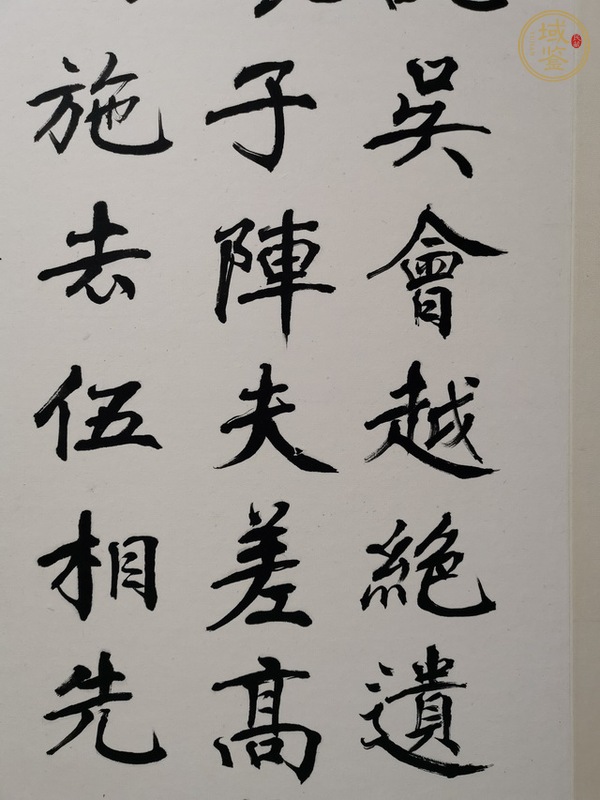 吳會越絕遺
子陣夫差高
施去伍相先
域鉴